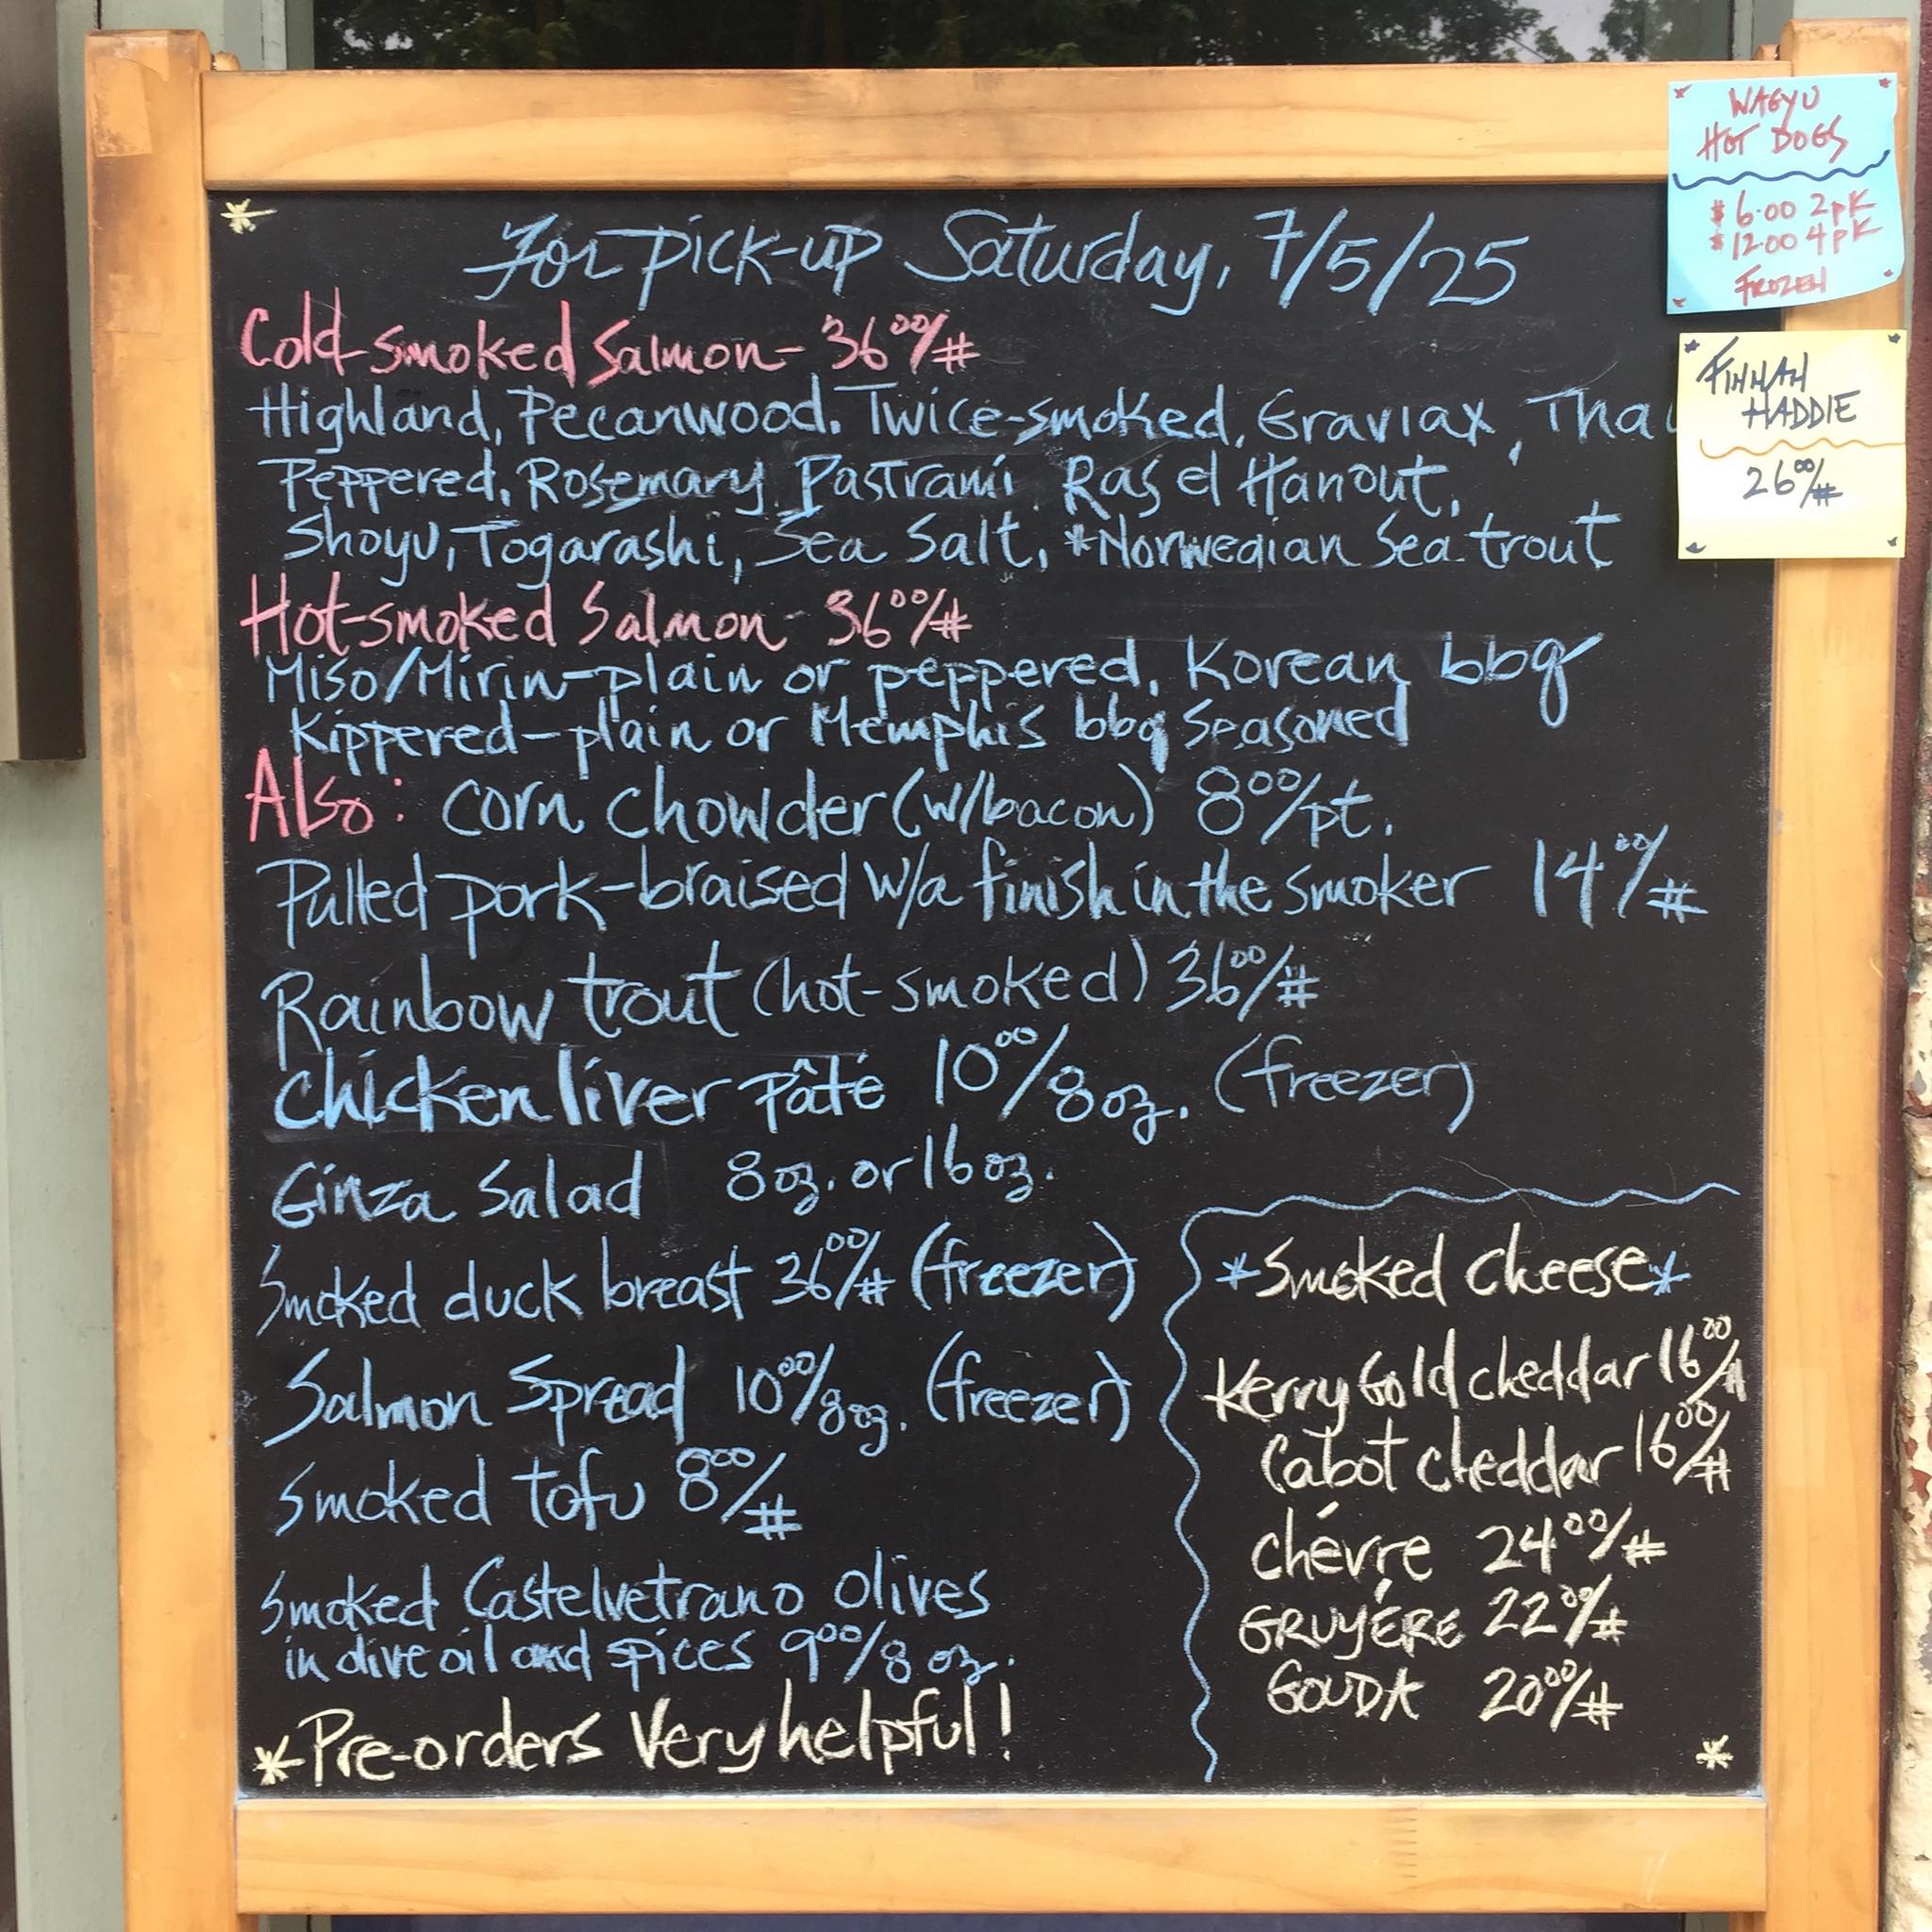 For pick-up Saturday, 7/5/25
Cold-smoked Salmon- 36⁰⁰/#
Highland, Pecanwood, Twice-smoked, Gravlax, Thai
Peppered, Rosemary, Pastrami, Ras el Hanout,
Shoyu, Togarashi, Sea Salt, *Norwegian Sea trout
Hot-smoked Salmon- 36⁰⁰/#
Miso/Mirin-plain or peppered, Korean bbq
Kippered-plain or Memphis bbq Seasoned
Also: corn chowder (w/bacon) 8⁰⁰/pt.
Pulled pork-braised w/a finish in the smoker 14⁰⁰/#
Rainbow trout (hot-smoked) 36⁰⁰/#
Chicken liver pâté 10⁰⁰/8oz. (freezer)
Ginza Salad 8oz. or 16oz.
Smoked duck breast 36⁰⁰/# (freezer)
Salmon Spread 10⁰⁰/8oz. (freezer)
Smoked tofu 8⁰⁰/#
Smoked Castelvetrano olives
in olive oil and spices 9⁰⁰/8 oz.
*Pre-orders Very helpful!
*Smoked Cheese*
KerryGold cheddar 16⁰⁰/#
Cabot cheddar 16⁰⁰/#
Chévre 24⁰⁰/#
GRUYÉRE 22⁰⁰/#
GOUDA 20⁰⁰/#
*
WAGYU
HOT DOGS
$6.00 2pk
$12.00 4pk
FROZEN
FINNAN
HADDIE
26⁰⁰/#